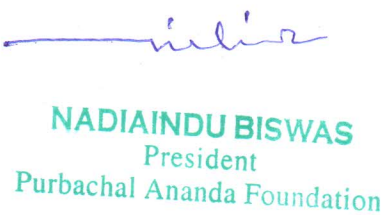 NADIAINDU BISWAS
President
Purbachal Ananda Foundation